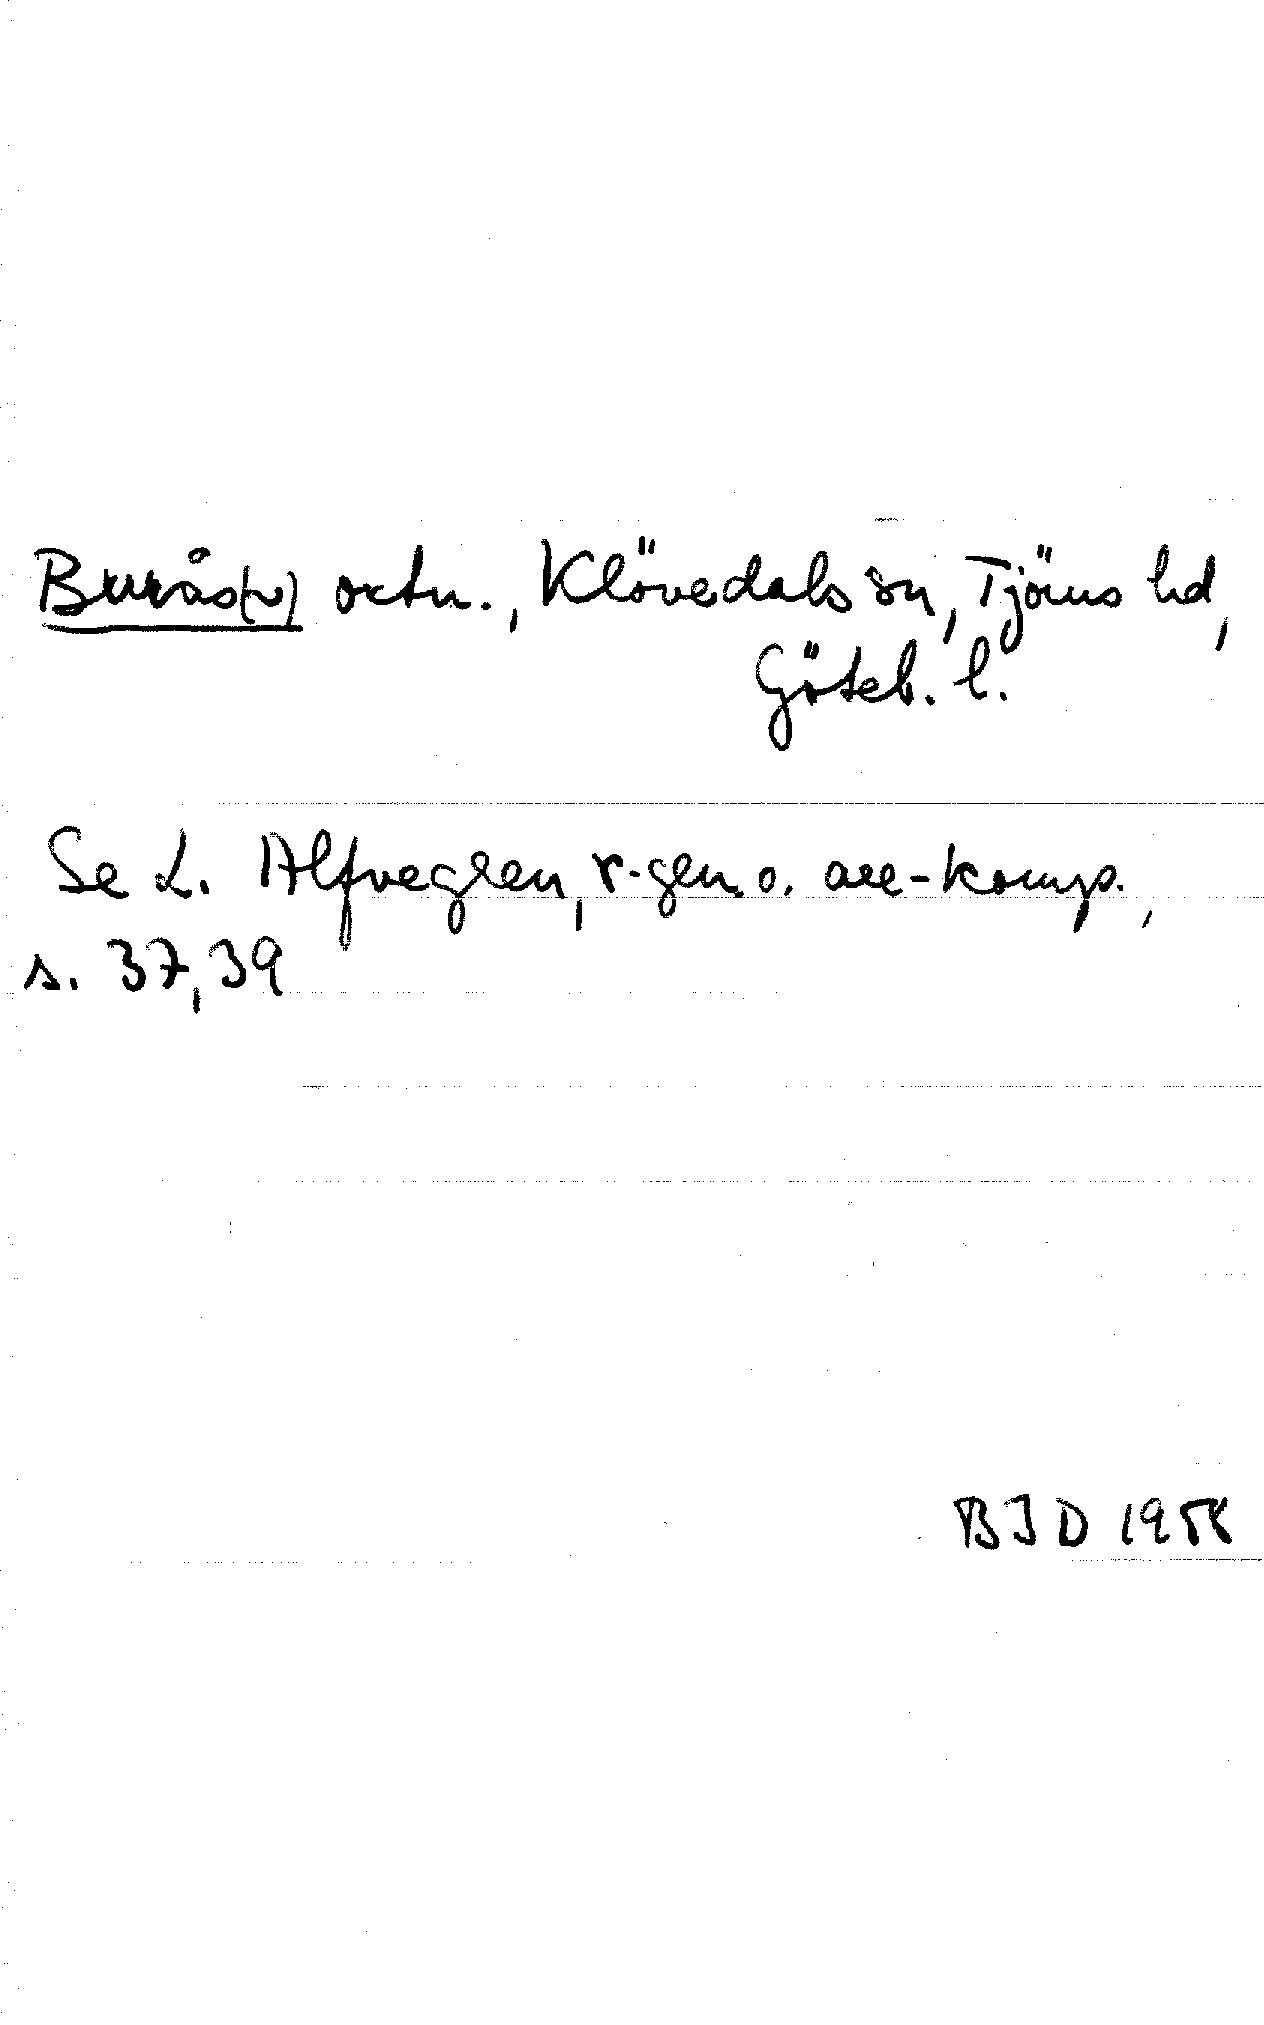 Burås(r) ortn., Klövedals sn, Tjörns hd,
Göteb. l.
Se L. Alfvegren, r-gen. o. are-komp.,
s. 37, 39
BJD 1958